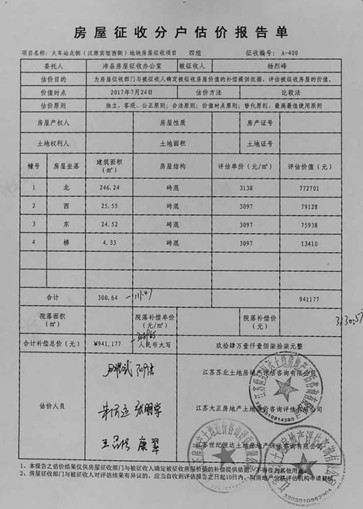 房屋征收分户估价报告单
项目名称：火车站北侧（沈塬宾馆西侧）地块房屋征收项目 四组 征收编号：A-400
委托人 沛县房屋征收办公室 被征收人 杨烈峰
估价目的 为房屋征收部门与被征收人确定被征收房屋价值的补偿提供依据，评估被征收房屋的价值。
价值时点 2017年7月24日 估价方法 比较法
估价原则 独立、客观、公正原则；合法原则；价值时点原则；替代原则、最高最佳使用原则
房屋产权人 房屋性质 房产证号
土地权利人 土地面积 土地证号
幢号 房屋坐落 建筑面积（㎡） 房屋结构 评估单价（元/㎡） 评估价值（元）
1 北 246.24 砖混 3138 772701
2 西 25.55 砖混 3097 79128
3 东 24.52 砖混 3097 75938
4 梯 4.33 砖混 3097 13410
合计 300.64 941177
院落面积（㎡） 院落补偿单价（元/㎡） 院落补偿价（元）
合计补偿总价（元） ¥941,177 人民币大写 玖拾肆万壹仟壹佰柒拾柒元整
估价人员
江苏苏北土地房地产评估咨询有限公司
江苏大正房地产土地造价咨询评估有限公司
江苏世纪恒达土地房地产评估咨询有限公司
1、本报告之估价结果仅供房屋征收部门与被征收人确定被征收房屋价值的补偿提供依据，不得作为其他用途。
2、房屋征收部门与被征收人对评估结果有异议的，应当自收到评估报告之日起10日内，向房地产价格评估机构申请复核。